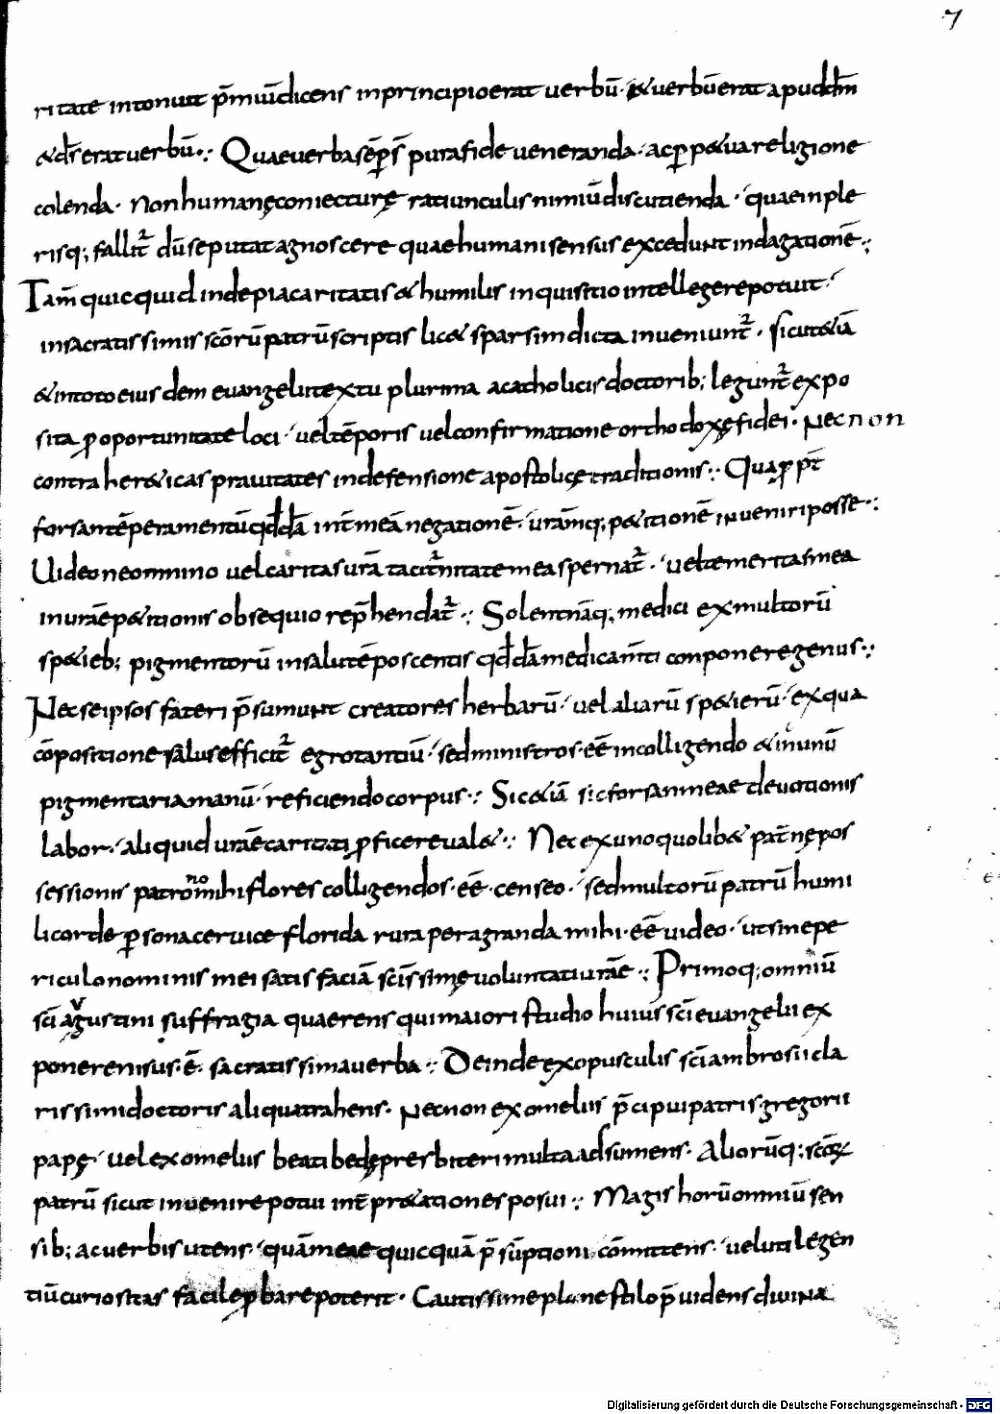 7
ritate intonuit p̄mūdicens inprincipioerat uerbū · &uerbūerat apuddm̄
&ds̄eratuerbū ·: Quaeuerbasēp̱s̄ purafide ueneranda · acp̱p&uareligione
colenda · nonhumanęconiecturę ratiunculis nimiūdiscutienda · quaeinple
risq; fallit᷑ dūseputatagnoscere quaehumanisensus excedunt indagationē ·:
Tam̄ quicquid indepiacaritatis & humilis inquisitio intellegerepotuit ·
insacratissimis scōrūpatrūscriptis lic& sparsimdicta inueniunt᷑ · sicut&iā
&intotoeiusdem euangeliitextu plurima acatholicisdoctorib; legunt᷑expo
sita p̱oportunitate loci · ueltēporis uelconfirmatione orthodoxęfidei · Necnon
contra her&icas prauitates indefensione apostolicętraditionis ·: Quap̱pt̄
forsantēperamentūqd̄dā int̄meānegationē · urāmq; p&itionē inueniriposse ·:
Uideoneomnino uelcaritasurā taciturnitatemeaspernat᷑ · ueltemeritasmea
inurāep&itionis obsequio rep̄hendat᷑ ·: Solentnāq; medici exmultorū
sp&ieb; pigmentorū insalutēposcentis qd̄dāmedicam̄ti conponeregenus ·:
Necseipsos fateri p̄sumunt creatores herbarū · uel aliarū sp&ierū · exqua
cōpositione salusefficit᷑ egrotantiū · sedministros · eē incolligendo & inunū
pigmentariamanū · reficiendocorpus ·: Sic&iā sicforsanmeae deuotionis
labor · aliquid urāecaritati p̱ficereuale& ·: Nec exunoquolib& pat̄nępos
sessionis patrōno mihi flores colligendos · eē · censeo · sedmultorū patrū humi
licorde p̱sonaceruice florida rura peragranda mihi · eē uideo · utsinepe
riculonominis mei satis faciā scīssimęuoluntatiurāe ·: Primoq; omniū
scī agustini suffragia quaerens quimaiori studio huius scīeuangelii ex
ponerenisus · ē · sacratissimauerba ·: Deindeexopusculis scīambrosiicla
rissimidoctoris aliquatrahens · Necnon exomeliis p̄cipuipatrisgregorii
papę · uelexomeliis beati bedępresbiteri multaadsumens · Aliorūq; scōꝝ
patrū sicut inuenirepotui int̄pr&ationesposui ·: Magis horūomniūsen
sib; acuerbisutens · quāmeae quicquā p̄sūptioni cōmittens · uelutilegen
tiūcuriositas facilep̱barepoterit · Cautissimeplanestilop̄uidens diuina
Digitalisierung gefördert durch die Deutsche Forschungsgemeinschaft · DFG